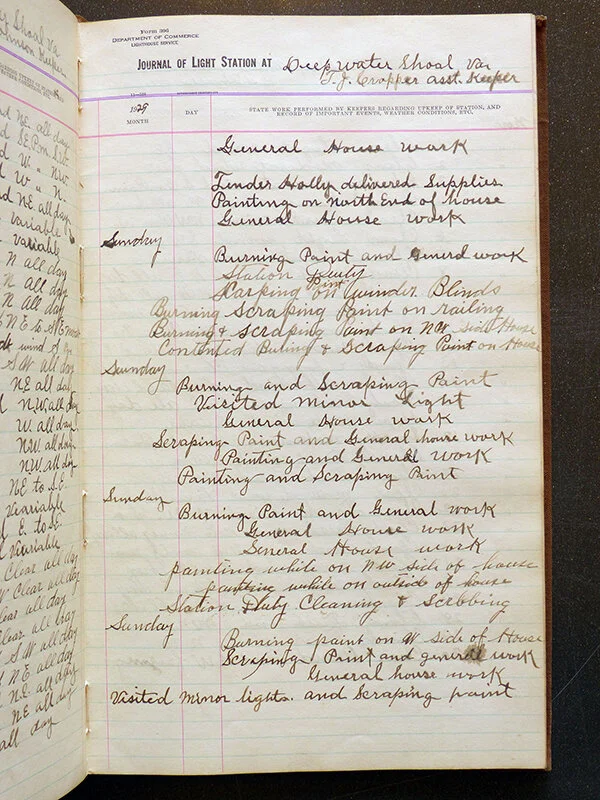 Shoal Va
Keeper
Form 306
DEPARTMENT OF COMMERCE
LIGHTHOUSE SERVICE
JOURNAL OF LIGHT STATION AT Deep water Shoal Va
T. J. Cropper asst. Keeper
1929
MONTH
DAY
STATE WORK PERFORMED BY KEEPERS REGARDING UPKEEP OF STATION, AND
RECORD OF IMPORTANT EVENTS, WEATHER CONDITIONS, ETC.
General House work
Tender Holly delivered Supplies
Painting on north End of house
General House work
Sunday
Burning Paint and General work
Station Duty
Scraping Paint on winder Blinds
Burning Scraping Paint on railing
Burning & scraping Paint on NW side House
Contenued Buring & Scraping Paint on House
Sunday
Burning and Scraping Paint
Visited minor Light
General House work
Scraping Paint and General house work
Painting and General work
Painting and Scraping Paint
Sunday
Burning Paint and General work
General House work
General House work
painting white on NW side of house
painting white on outside of house
Station Duty Cleaning & Scrubbing
Sunday
Burning paint on W side of House
Scraping Paint and general work
General house work
Visited minor lights. and Scraping paint
NE all day
W " NW
W " N.
NE all day
Variable
Variable
N all day
N all day
N All day
NE to SE
wind S
SW all day
NE all day
N.W. all day
W. all day
NW. all day
NW all day
NE to S.E.
Variable
E. to SE.
Variable
Clear all day
Clear all day
Clear all day
Clear all day
SW all day
N.E. all day
N.E. all day
NE all day
all day